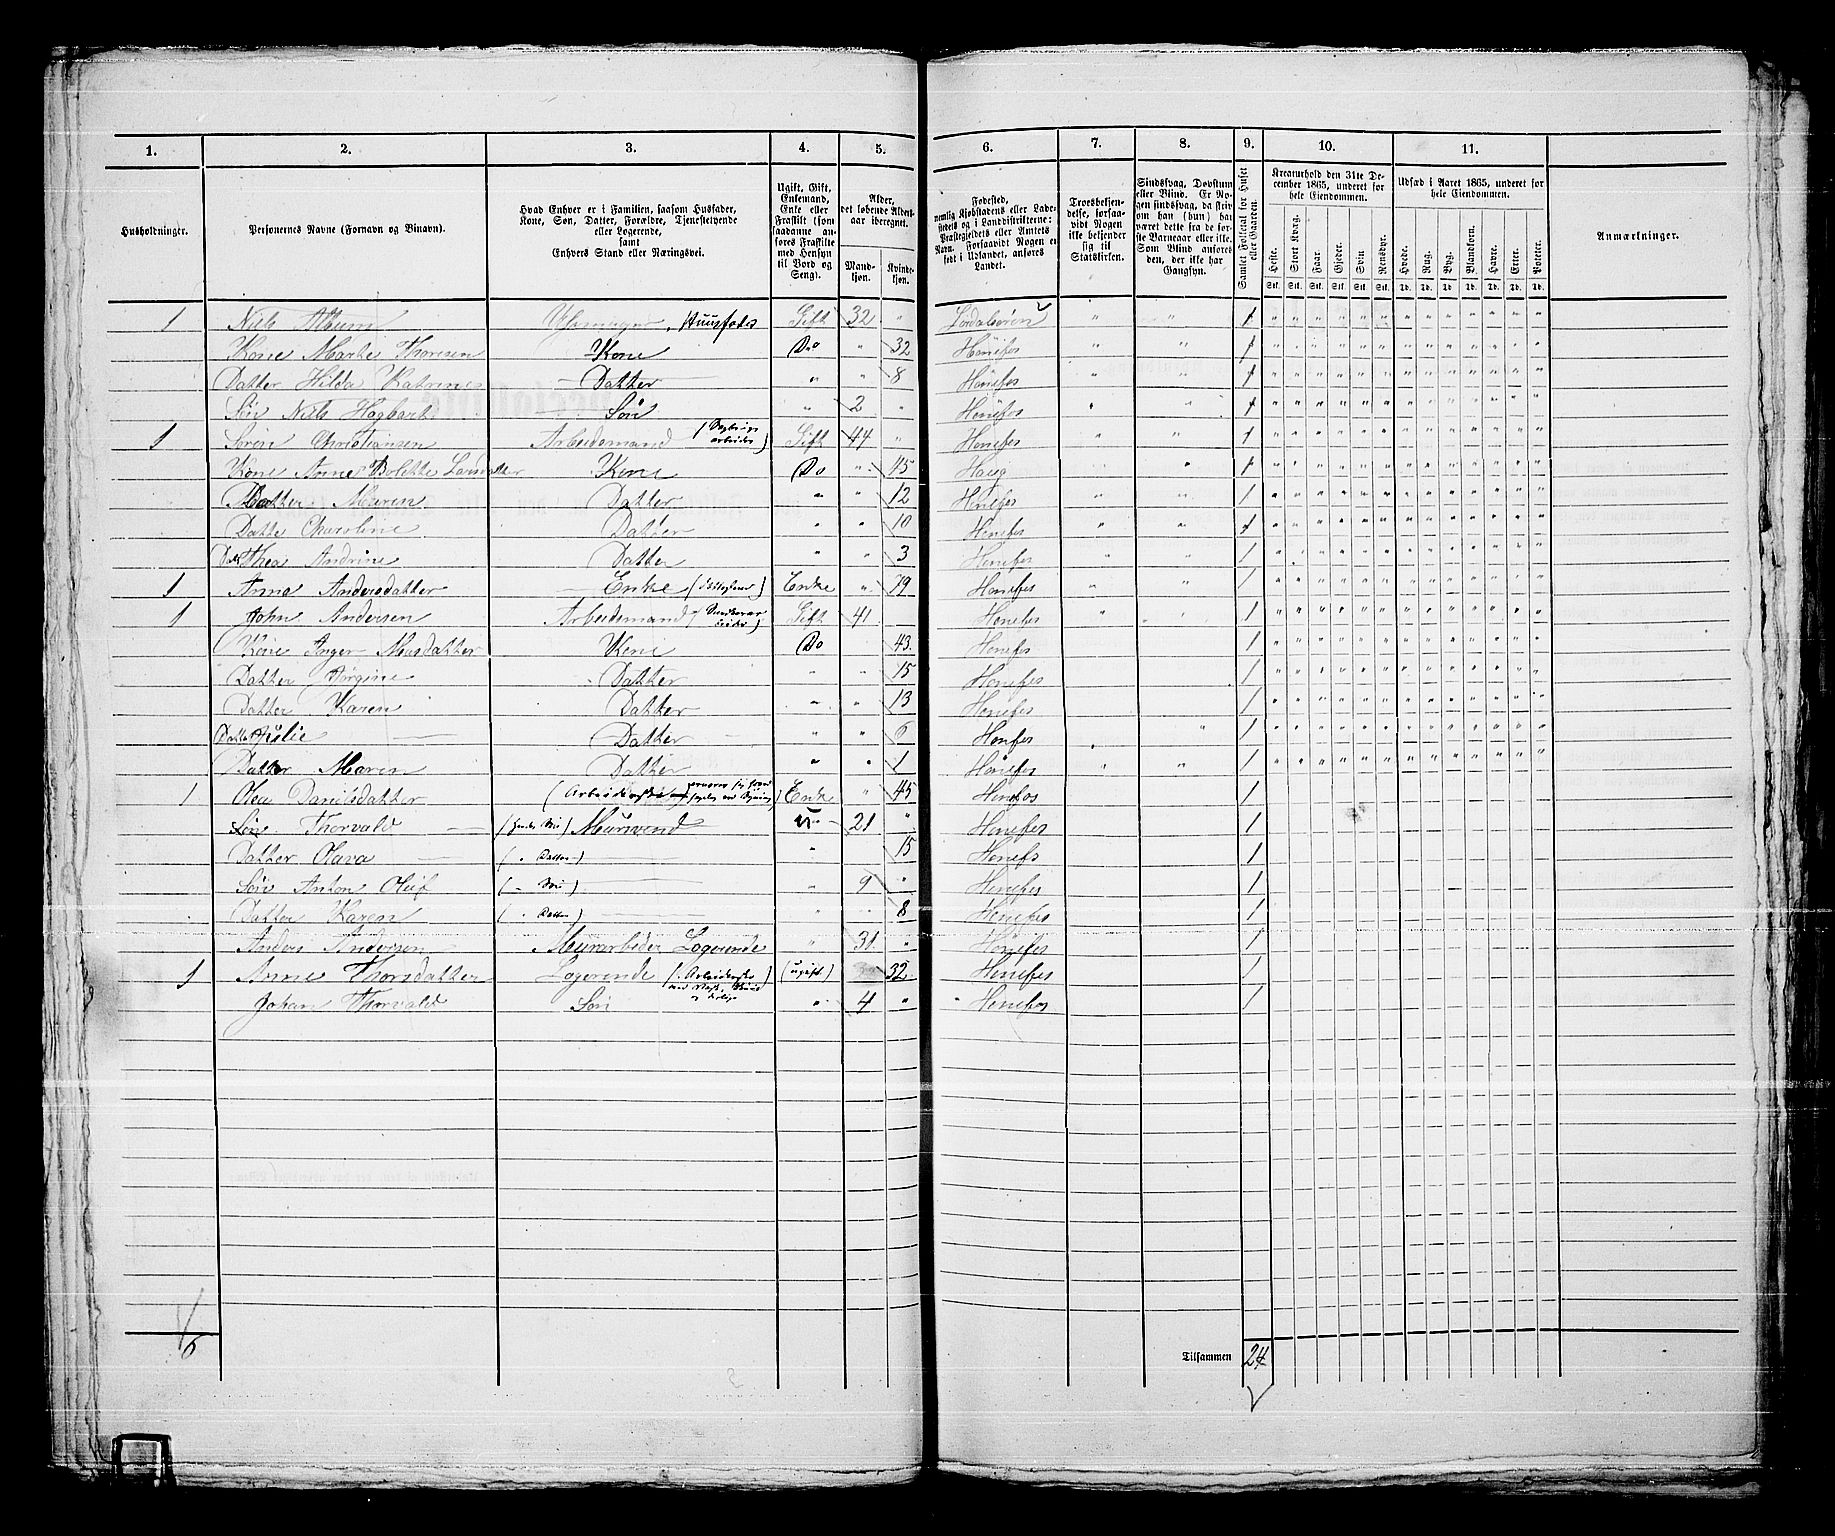 1. 2. 3. 4. 5. 6. 7. 8. 9. 10. 11.
Husholdninger.
Personernes Navne (Fornavn og Binavn).
Hvad Enhver er i Familien, saasom Husfader, Kone, Søn, Datter, Forældre, Tjenestetyende eller Logerende, samt Enhvers Stand eller Næringsvei.
Ugift, Gift, Enkemand, Enke eller Fraskilt (som saadanne anføres Fraskilte med Hensyn til Bord og Seng).
Alder, det løbende Aldersaar iberegnet.
Mandkjøn. Kvindekjøn.
Fødested, nemlig Kjøbstadens eller Ladestedets og i Landdistrikterne: Præstegjeldets eller Amtets Navn. Forsaavidt Nogen er født i Udlandet, anføres Landet.
Troesbekjendelse, forsaavidt Nogen ikke bekjender sig til Statskirken.
Sindssvag, Døvstum eller Blind. Er Nogen sindssvag, da skriv om han (hun) har været dette fra de første Barneaar eller ikke. Som Blind anføres den, der ikke har Gangsyn.
Samlet Folketal for Huset eller Gaarden.
Kreaturhold den 31te December 1865, underet for hele Eiendommen.
Heste. Stort Kvæg. Faar. Gjeder. Svin. Rensdyr.
Stk. Stk. Stk. Stk. Stk. Stk.
Udsæd i Aaret 1865, underet for hele Eiendommen.
Hvede. Rug. Byg. Blandkorn. Havre. Erter. Poteter.
Td. Td. Td. Td. Td. Td. Td.
Anmærkninger.
1 Niels Huusfader Gift 32 " 1
Kone Marte Thoresen Kone Do " 32 Hönefos 1
Datter Hilda Katrine Datter " " 8 Hönefos 1
Sön Niels Hagbart Sön " 2 " Hönefos 1
1 Sören Christiansen Arbeidsmand Gift 44 " Hönefos 1
Kone Anne Bolette Kone Do " 45 Haug 1
Datter Maren Datter " " 12 Hönefos 1
Datte Charoline Datter " " 10 Hönefos 1
Thea Andrine Datter " " 3 Hönefos 1
1 Anne Andersdatter Enke Enke " 79 Hönefos 1
1 John Andersen Arbeidsmand Gift 41 Hönefos 1
Kone Inger Kone Do 43 Hönefos 1
Datter Jörgine Datter " " 15 Hönefos 1
Datter Karen Datter " " 13 Hönefos 1
Datter Julie Datter " " 6 Hönefos 1
Datter Maren Datter " " 1 Hönefos 1
1 Olea Danielsdatter Enke " 45 Hönefos 1
Sön Thorvald (hendes Sön) Mursvend 21 " Hönefos 1
Datter Olava (" Datter) " 15 Hönefos 1
Sön Anton Oluf (" Sön) " 9 " Hönefos 1
Datter Karen (" Datter) " 8 Hönefos 1
Anders Andersen Murarbeider Logerende " 31 " Hönefos 1
1 Anne Thorsdatter Logerende (ugift) 32 Hönefos 1
Johan Thorvald Sön " 4 " Hönefos 1
6
Tilsammen 24